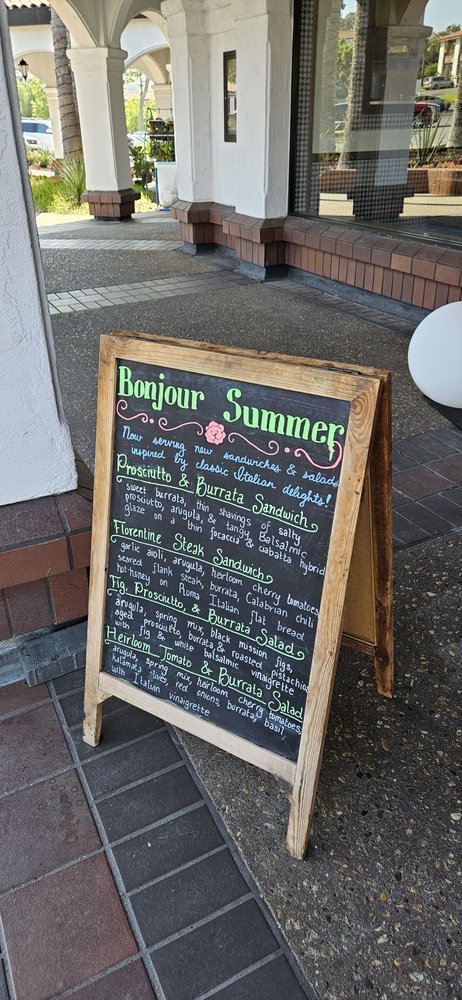 Bonjour Summer
Now serving new sandwiches & salads
inspired by classic Italian delights!
Prosciutto & Burrata Sandwich
sweet burrata, thin shavings of salty
prosciutto, arugula, & tangy Balsamic
glaze on a thin focaccia & ciabatta hybrid
Florentine Steak Sandwich
garlic aioli, arugula, heirloom cherry tomatoes
seared flank steak, burrata, Calabrian chili
hot-honey on Roma Italian flat bread
Fig, Prosciutto, & Burrata Salad
arugula, spring mix, black mission figs,
aged prosciutto, burrata, & roasted pistachios
with fig & white balsalmic vinaigrette
Heirloom Tomato & Burrata Salad
arugula, spring mix, heirloom cherry tomatoes,
Kalamata olives, red onions, burrata, basil,
with Italian vinaigrette